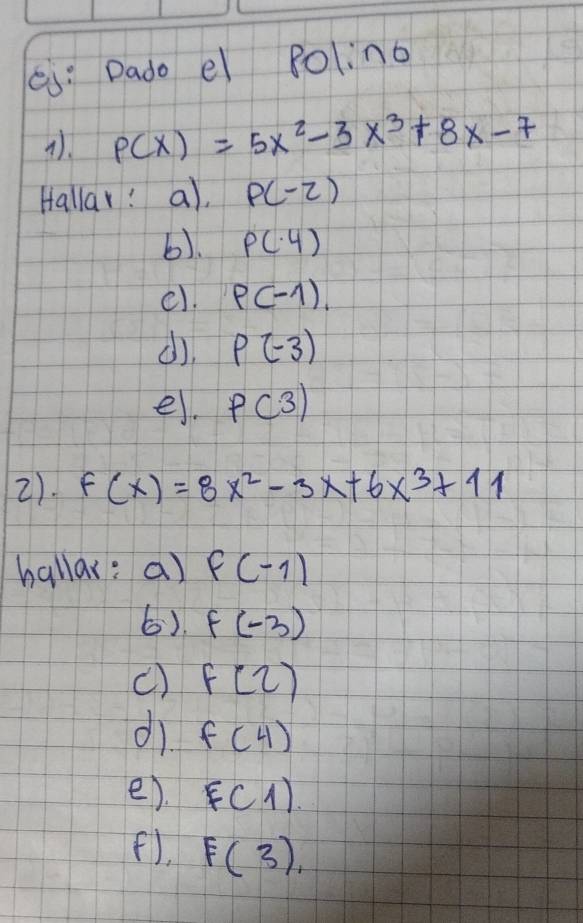 Ej: Dado el Polino
1). P(x) = 5x² - 3x³ + 8x - 7
Hallar: a). P(-2)
b). P(·4)
c). P(-1).
d). P(-3)
e). P(3)
2). f(x) = 8x² - 3x + 6x³ + 11
hallar: a) f(-1)
b). f(-3)
c) f(2)
d). f(4)
e). F(1).
f). F(3).